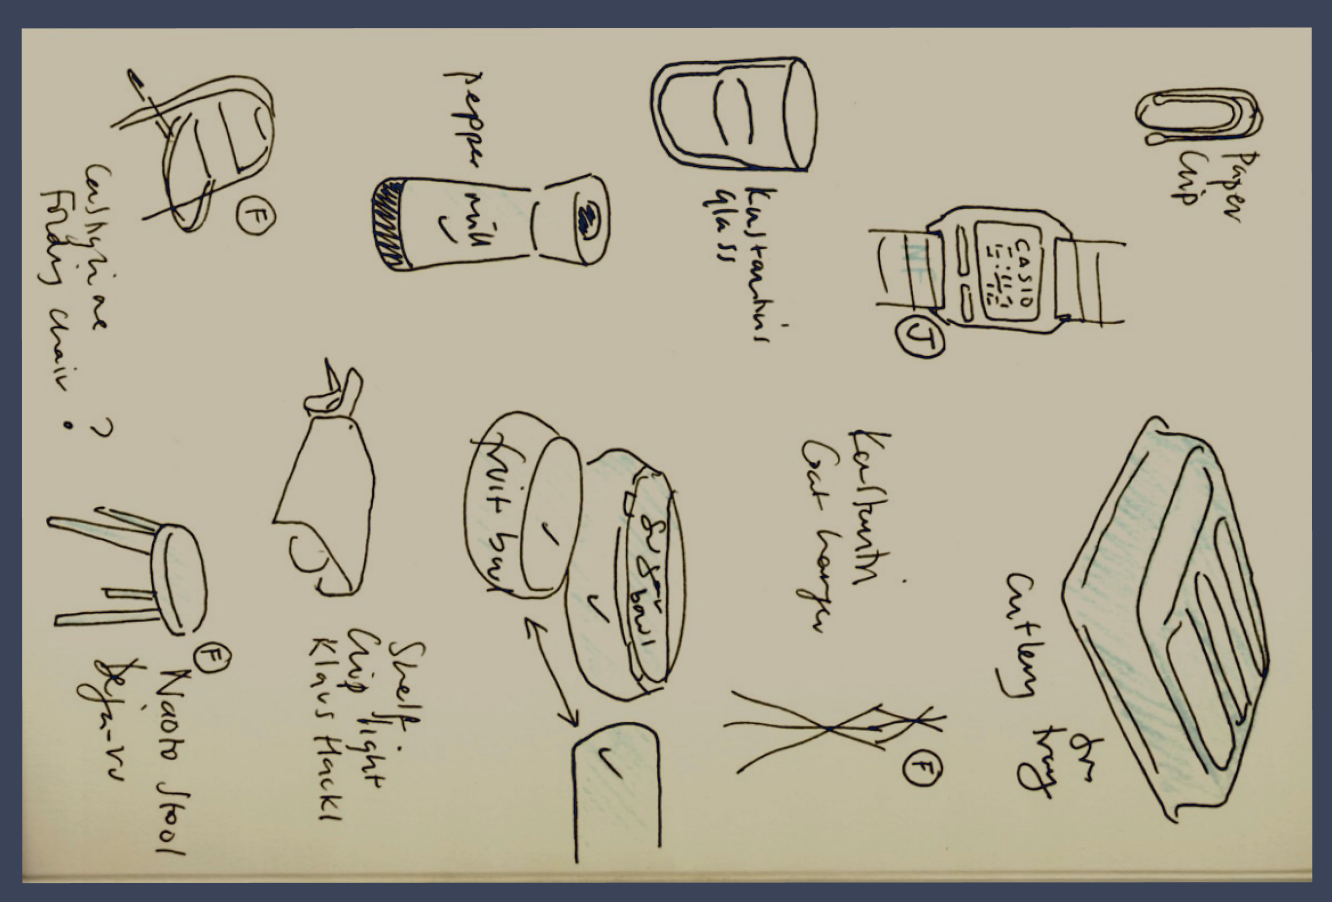 Paper
Clip
CASIO
J
cutlery
tray
Konstantin's
glass
Konstantin
Coat hanger
F
pepper mill
sugar
bowl
fruit bowl
Shelf
Clip light
Klaus Hackl
F
Castiglione ?
Folding chair
F
Naoto Stool
Deja-vu